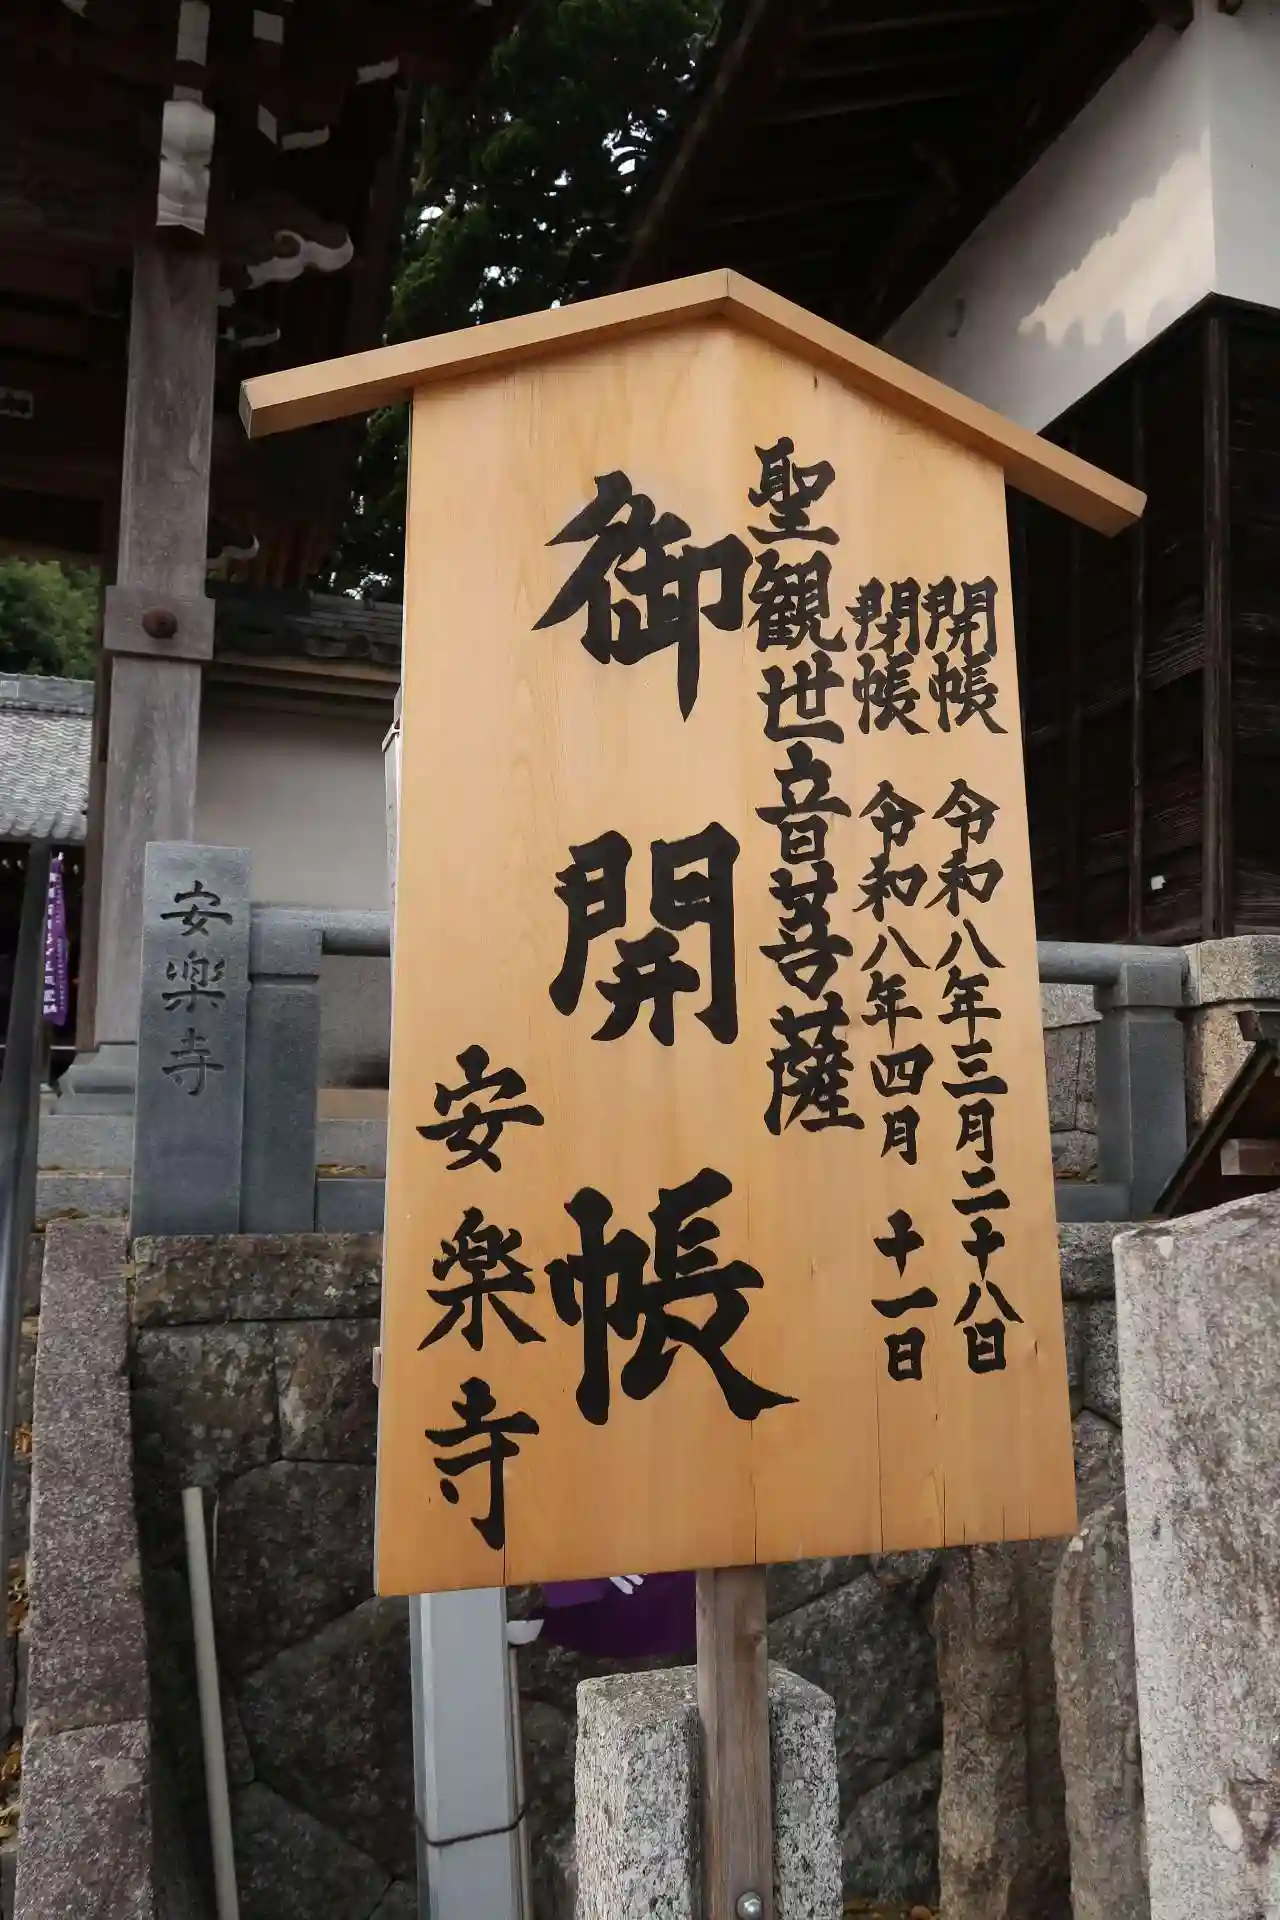 開帳 令和八年三月二十八日
閉帳 令和八年四月 十一日
聖観世音菩薩
御開帳
安楽寺
安楽寺